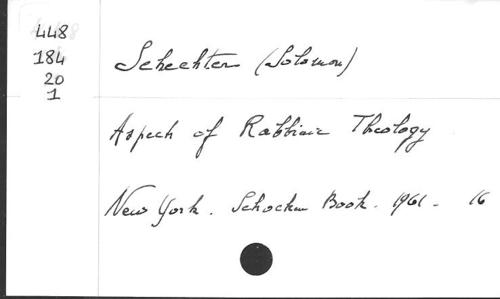 448
184
20
1
Schechter (Solomon)
Aspech of Rabbinic Theology
New York. Schocken Book. 1961. 16